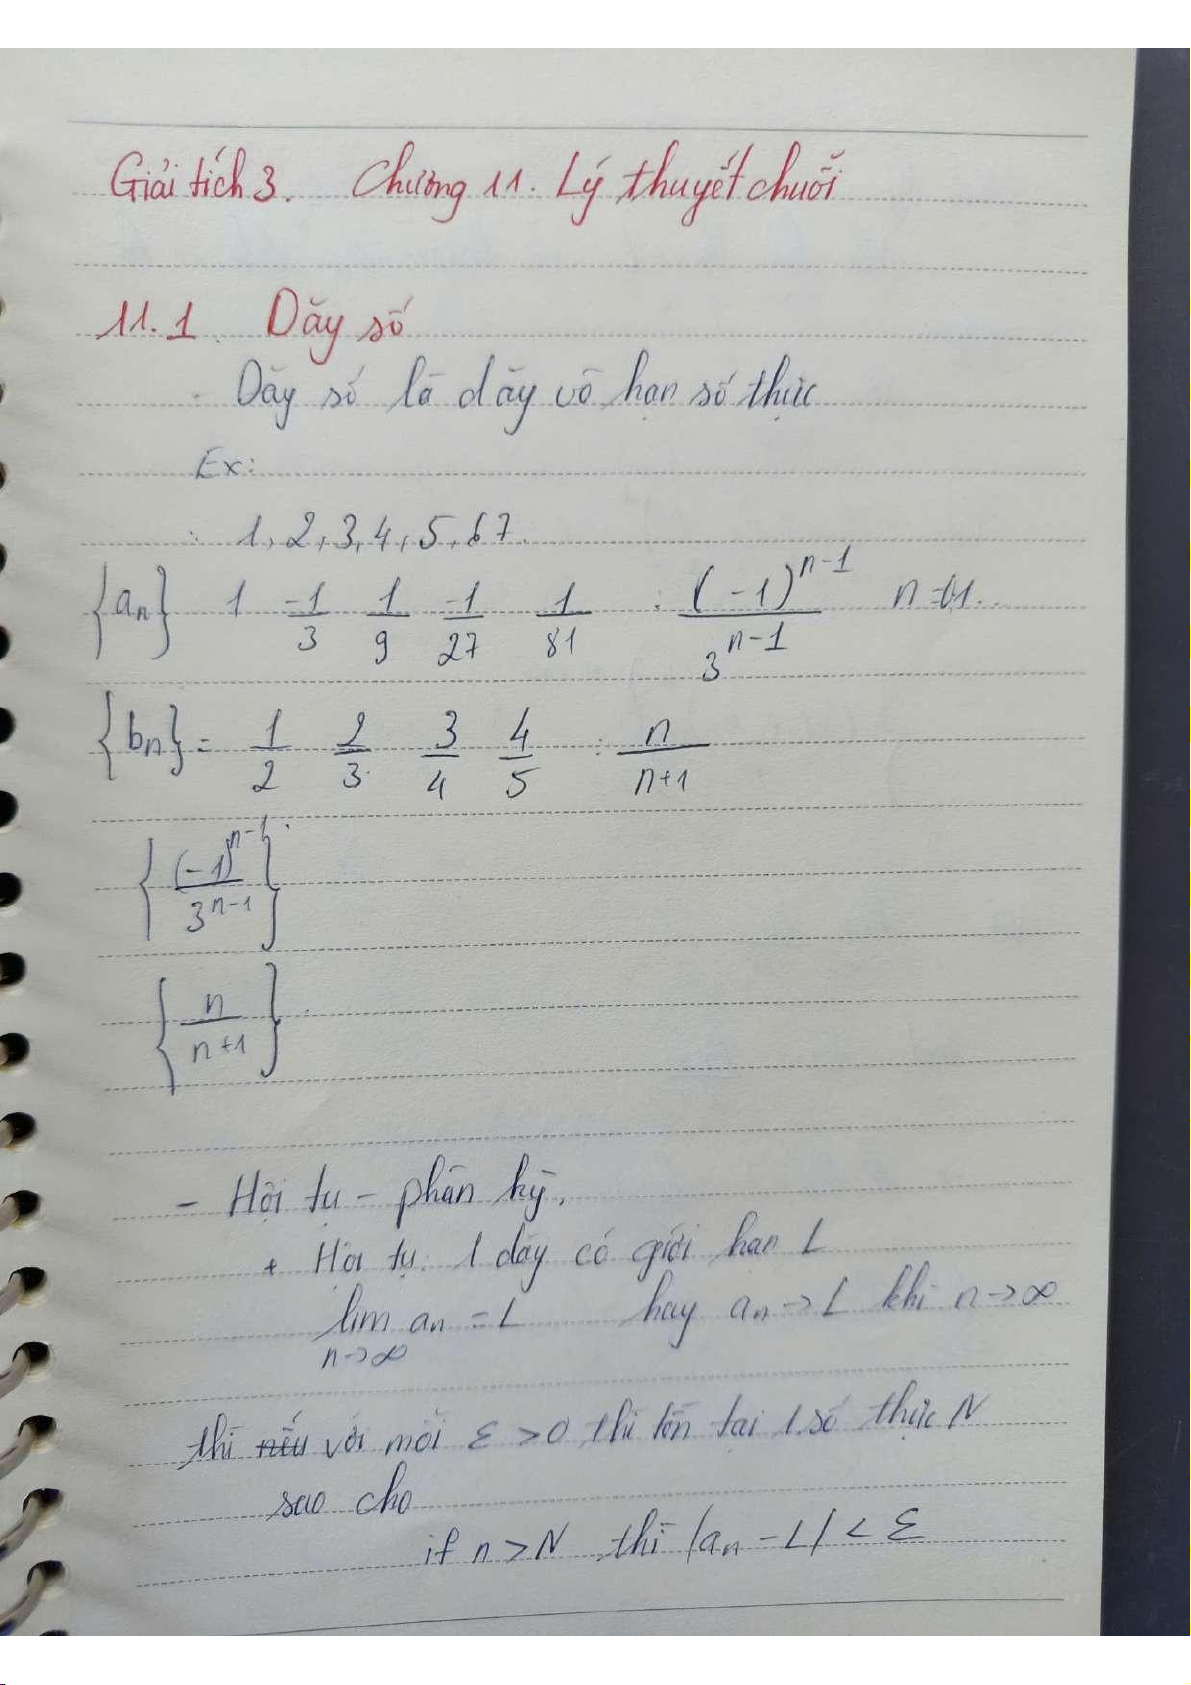 Giải tích 3. Chương 11. Lý thuyết chuỗi
11.1 Dãy số
- Dãy số là dãy vô hạn số thực
Ex:
: 1, 2, 3, 4, 5, 6 7.
{aₙ} 1 -1/3 1/9 -1/27 1/81 : (-1)^(n-1) / 3^(n-1)
{bₙ} = 1/2 2/3 3/4 4/5 : n/(n+1)
{(-1)^(n-1) / 3^(n-1)}
{n/(n+1)}
- Hội tụ - phân kỳ.
+ Hội tụ: 1 dãy có giới hạn L
lim aₙ = L hay aₙ → L khi n → ∞
n→∞
thì nếu với mỗi ε > 0 thì tồn tại 1 số thực N
sao cho
if n > N thì |aₙ - L| < ε